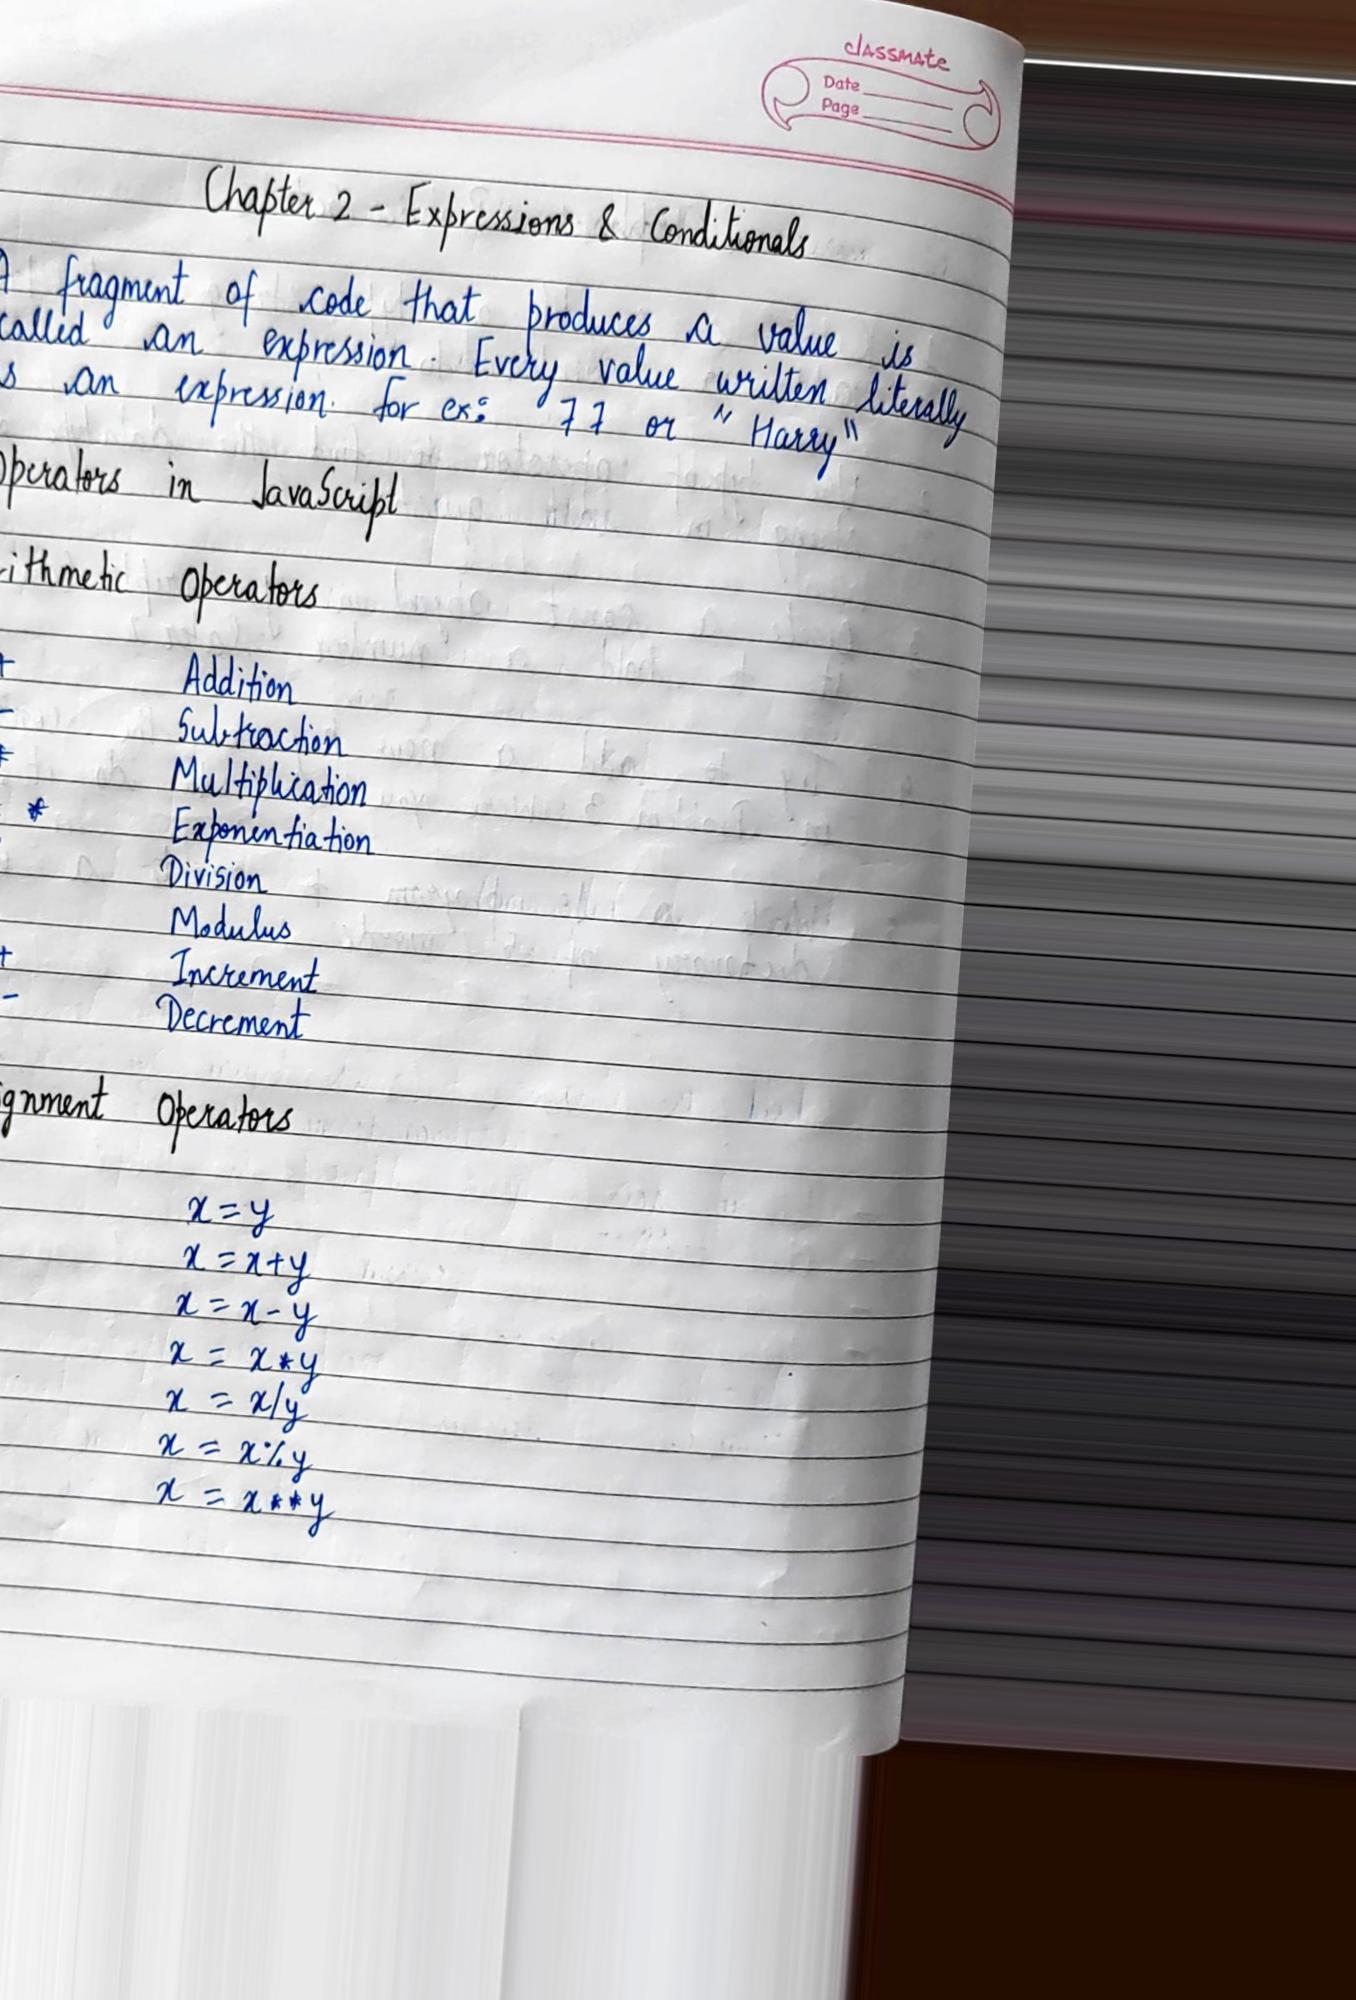 classmate
Date
Page
Chapter 2 - Expressions & Conditionals
A fragment of code that produces a value is
called an expression. Every value written literally
s an expression. for ex: 77 or "Harry"
Operators in JavaScript
ithmetic Operators
+ Addition
- Subtraction
* Multiplication
* Exponentiation
Division
Modulus
+ Increment
- Decrement
gnment Operators
x = y
x = x+y
x = x-y
x = x*y
x = x/y
x = x%y
x = x**y